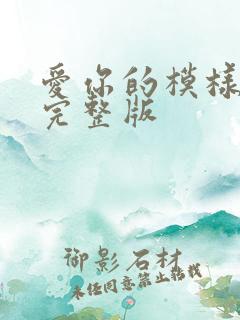 爱你的模样
完整版
御影石材
未经同意禁止转载